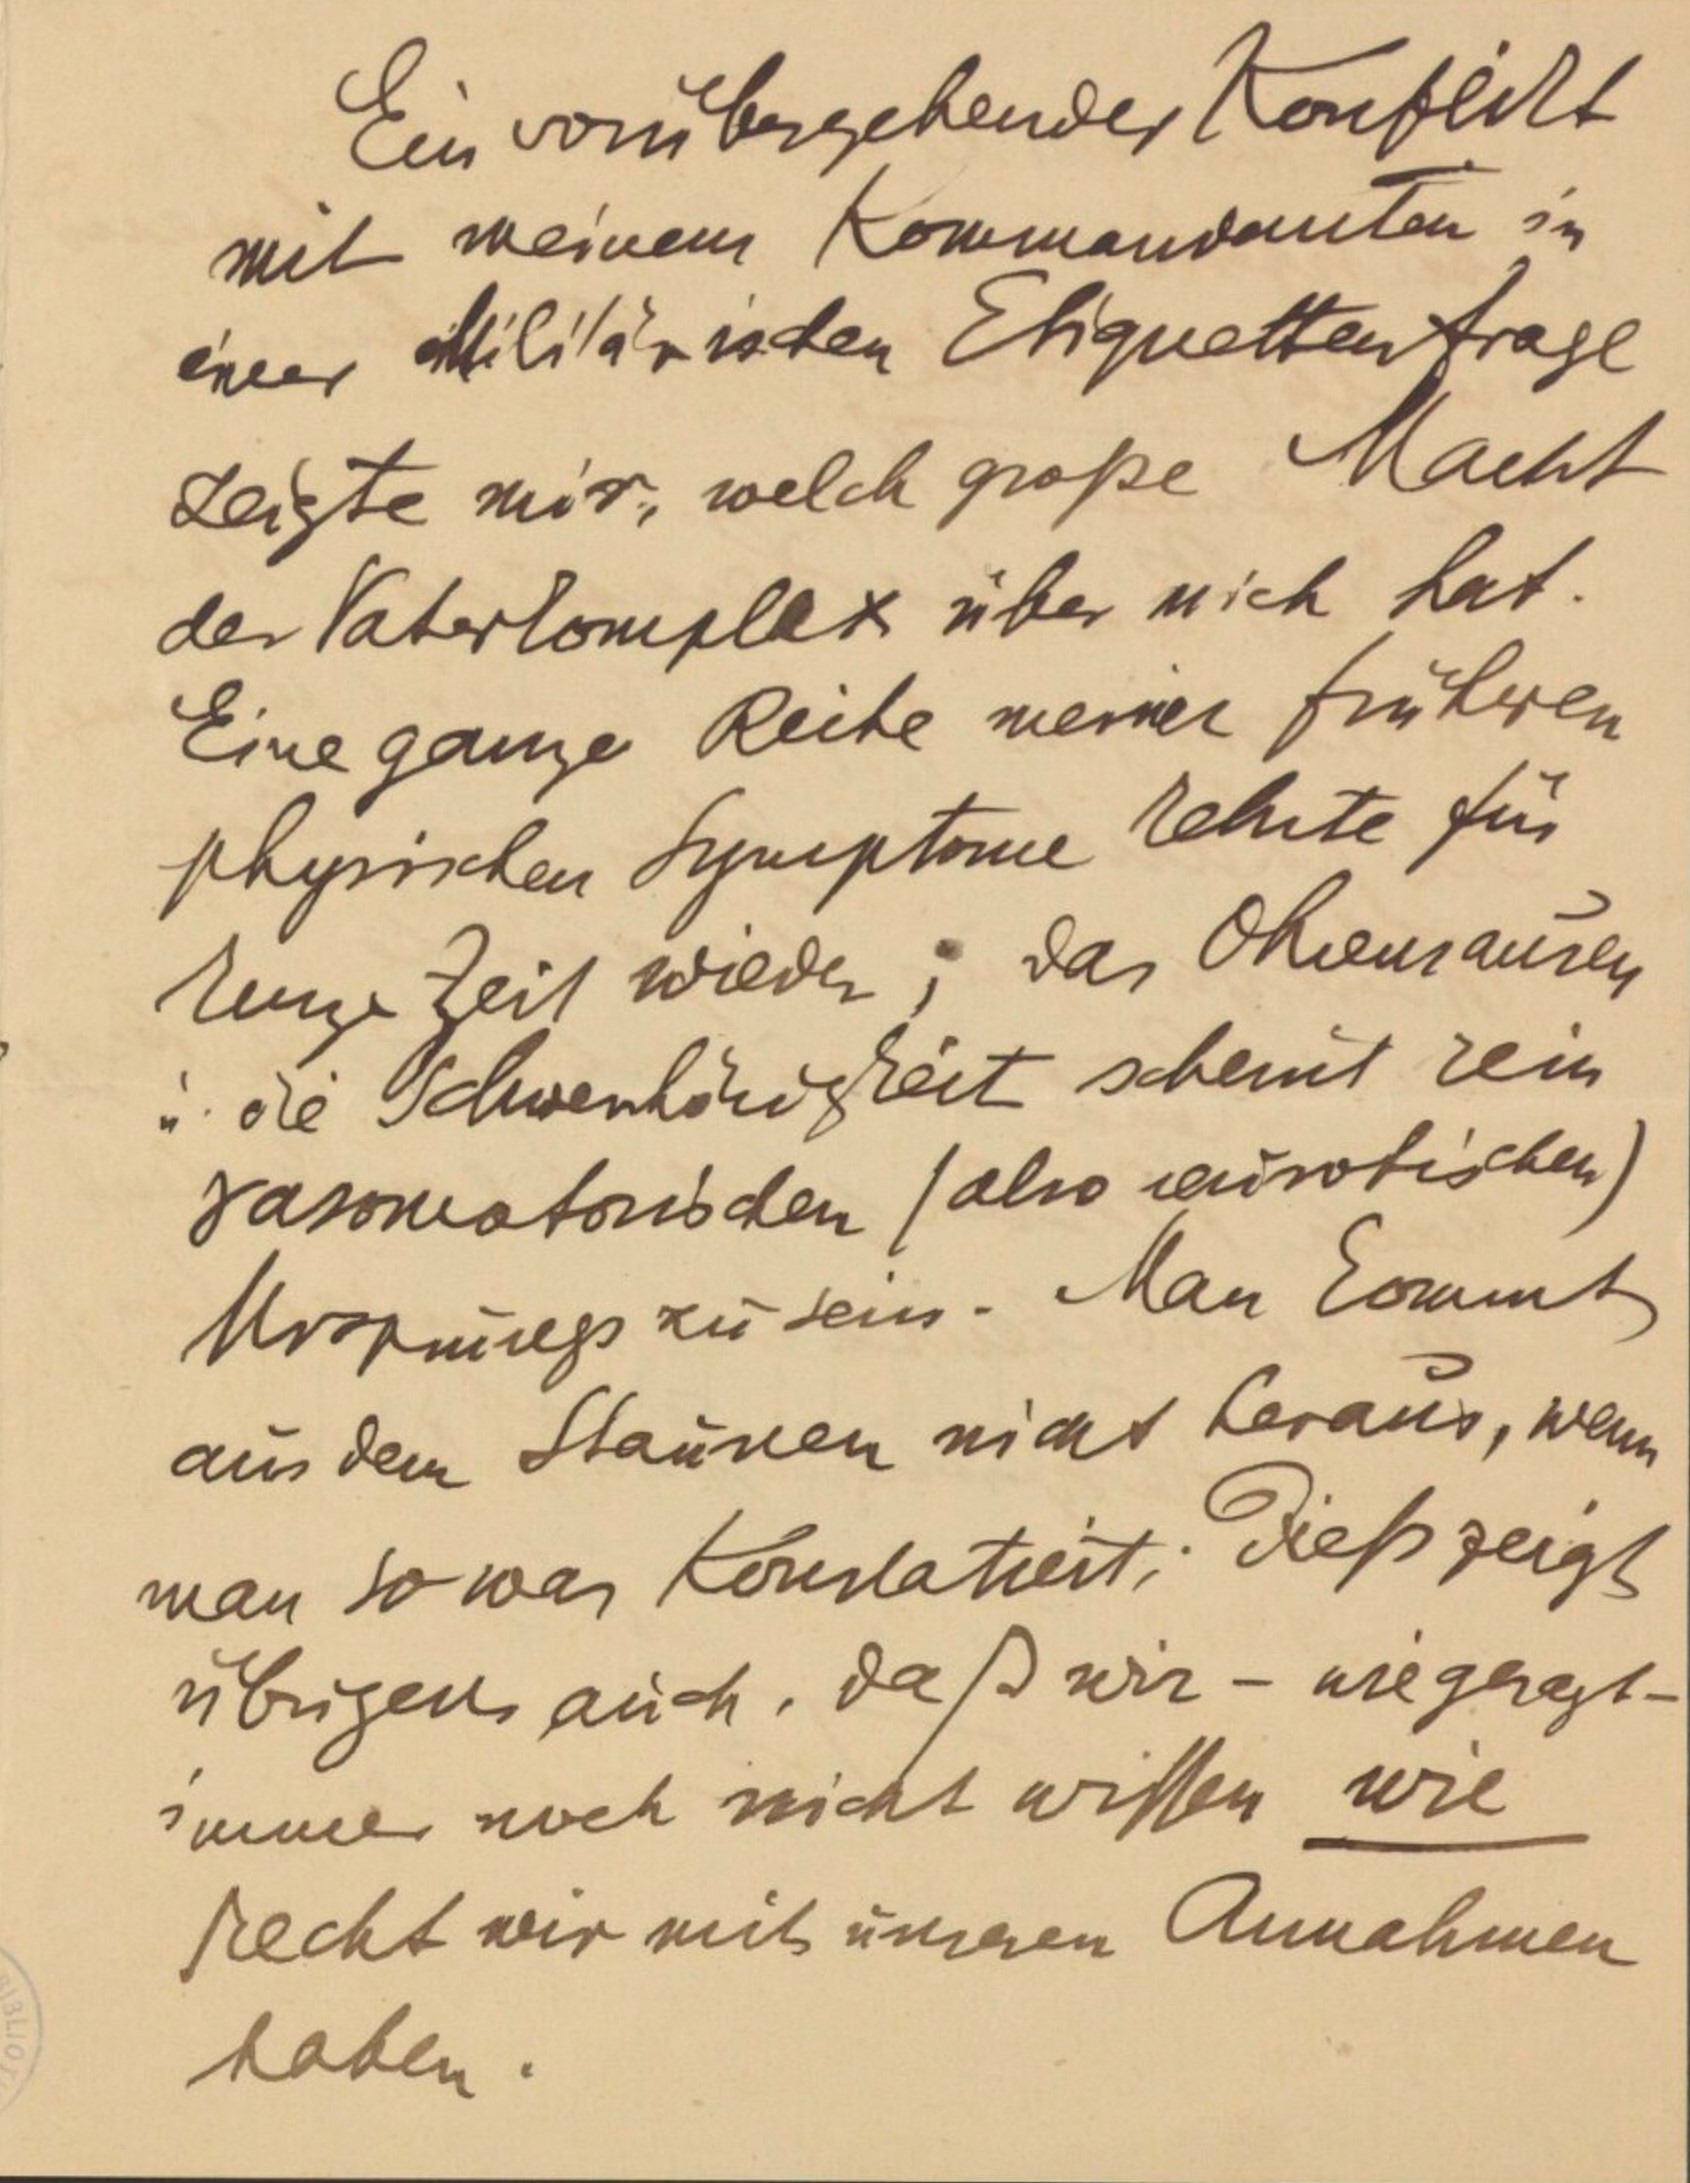 Ein vorübergehender Konflikt
mit meinem Kommandanten in
einer Militärischen Etiquettenfrage
zeigte mir, welch große Macht
der Vaterkomplex über mich hat.
Eine ganze Reihe meiner früheren
physischen Symptome kehrte für
kurze Zeit wieder; das Ohrensausen
u. die Schwerhörigkeit scheint rein
vasomotorischen (also neurotischen)
Ursprungs zu sein. Man kommt
aus dem Staunen nicht heraus, wenn
man so was Konstatiert; Dieß zeigt
übrigens auch, daß wir – wie gesagt –
immer noch nicht wissen wie
Recht wir mit unseren Annahmen
haben.
BIBLIOT